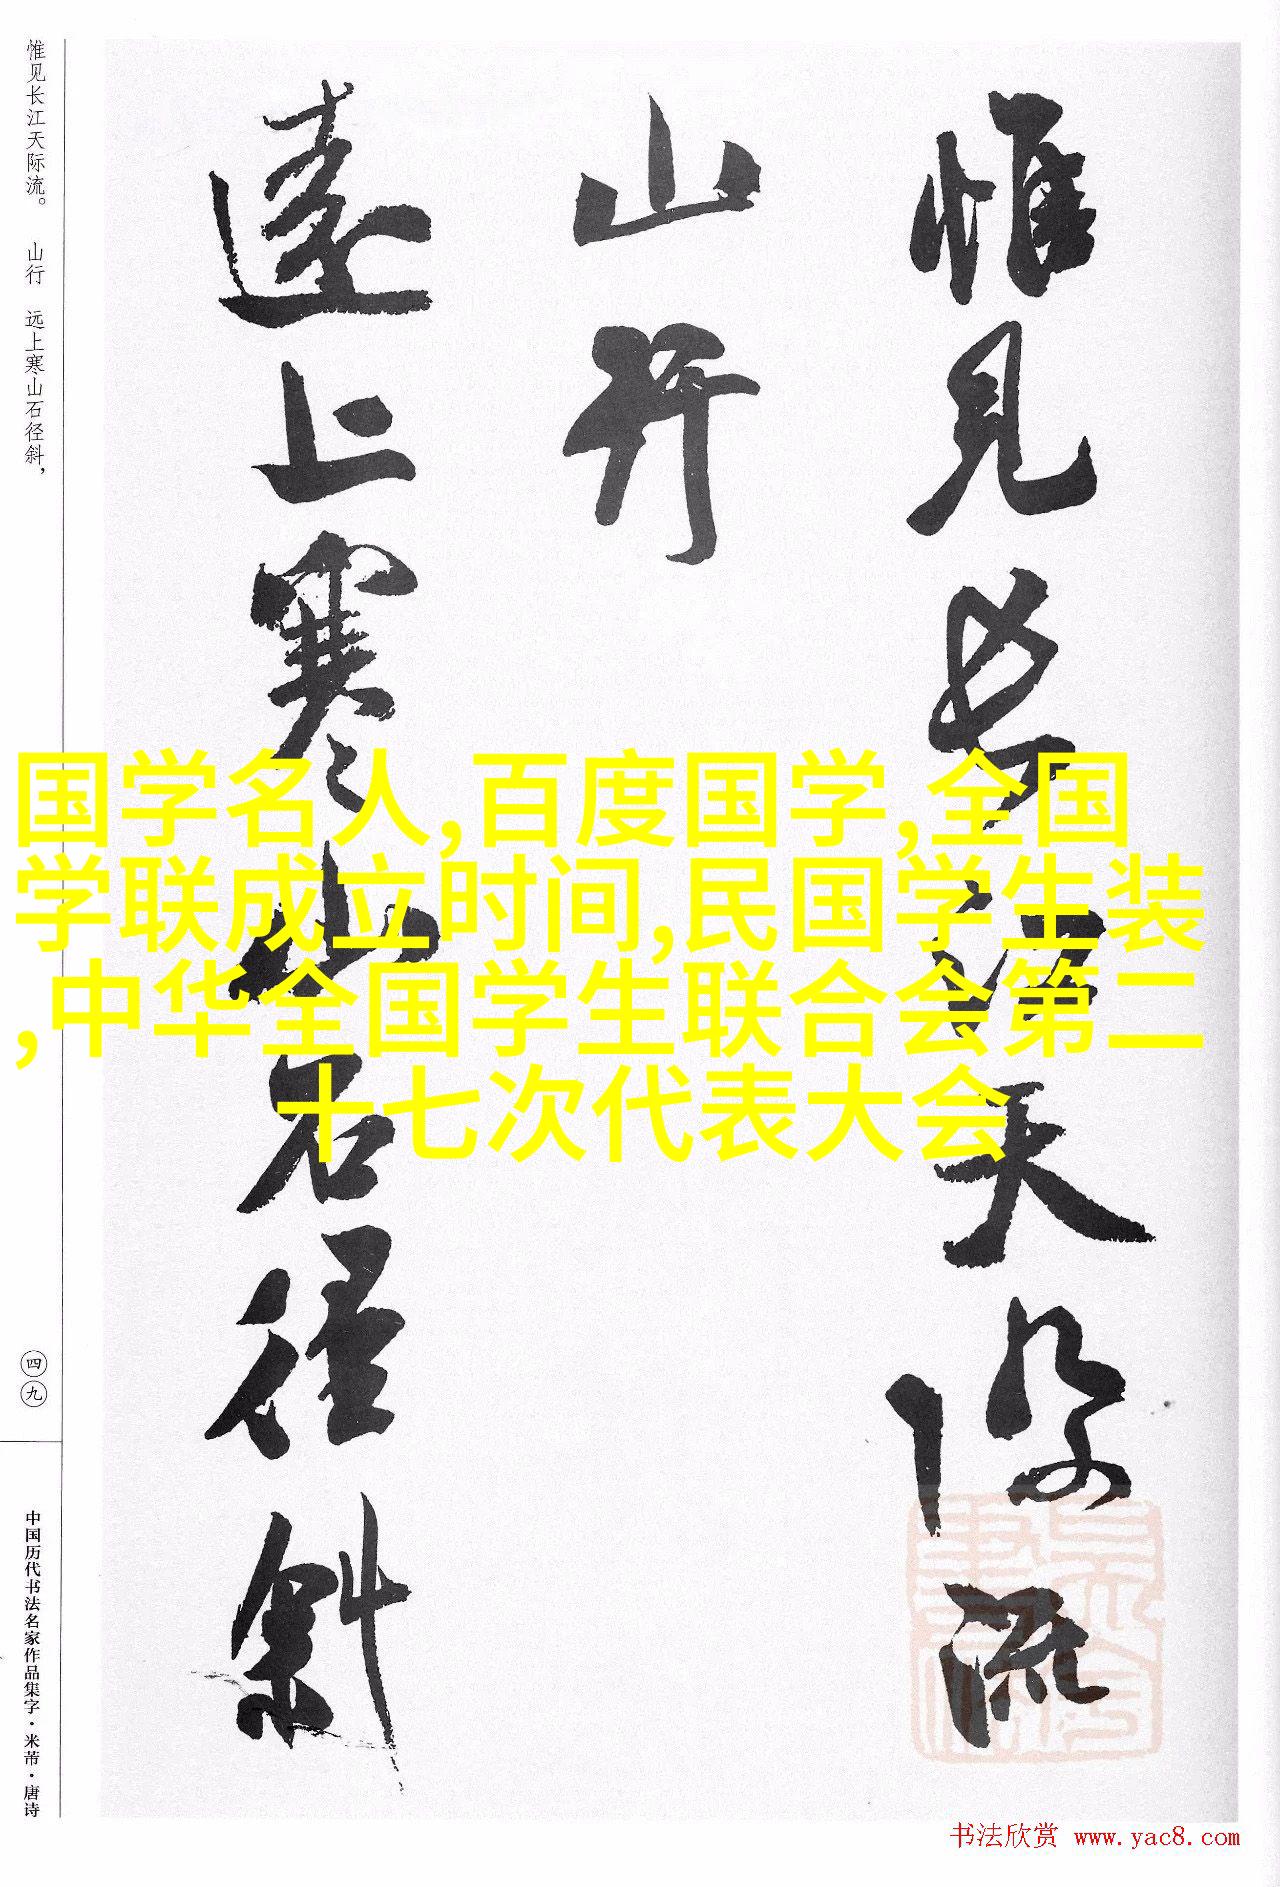 惟见长江天际流。 山行 远上寒山石径斜，
惟見長江天際流
山行
遠上寒山石徑斜
国学名人,百度国学,全国
学联成立时间,民国学生装
,中华全国学生联合会第二
十七次代表大会
四九
中国历代书法名家作品集字·米芾·唐诗
书法欣赏 www.yac8.com